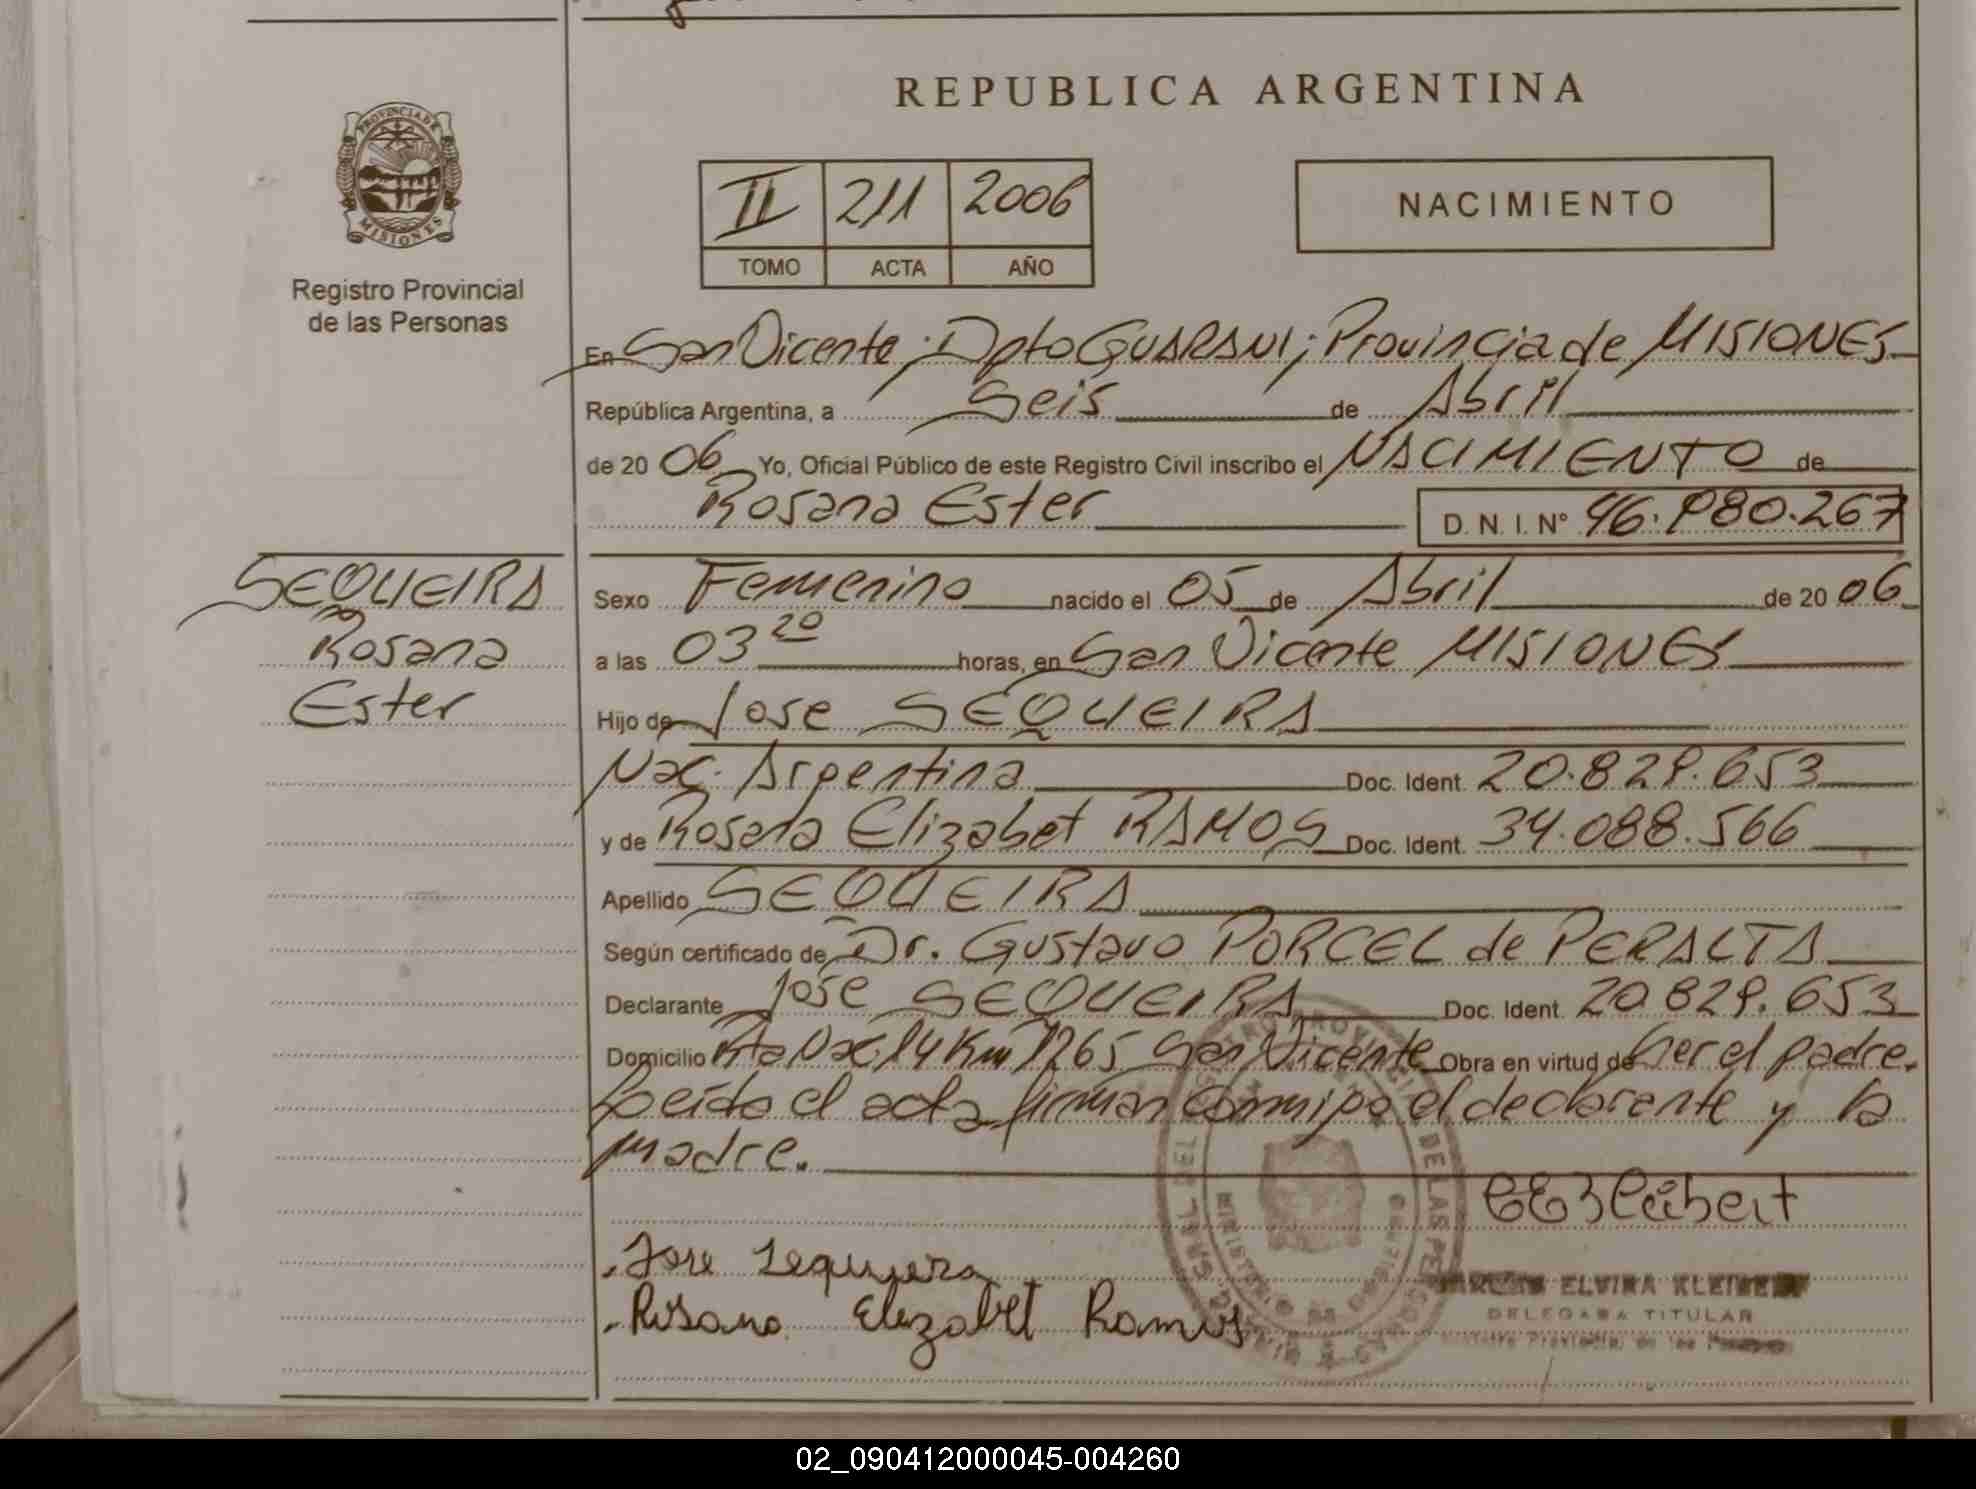 REPUBLICA ARGENTINA
PROVINCIA DE
MISIONES
Registro Provincial
de las Personas
II 211 2006
TOMO ACTA AÑO
NACIMIENTO
En San Vicente; Dpto GUARANI; Provincia de MISIONES
República Argentina, a Seis de Abril
de 20 06 Yo, Oficial Público de este Registro Civil inscribo el NACIMIENTO de
Rosana Ester D. N. I. N° 46.980.267
SEQUEIRA
Rosana
Ester
Sexo Femenino nacido el 05 de Abril de 20 06
a las 03 20 horas, en San Vicente MISIONES
Hijo de Jose SEQUEIRA
Nac. Argentina Doc. Ident. 20.829.653
y de Rosana Elizabet RAMOS Doc. Ident. 34.088.566
Apellido SEQUEIRA
Según certificado de Dr. Gustavo PORCEL de PERALTA
Declarante Jose SEQUEIRA Doc. Ident. 20.829.653
Domicilio Rta Nac. 14 Km 1265 San Vicente Obra en virtud de Ser el padre.
Leída el acta firman conmigo el declarante y la
madre.
Jose Sequeira
Rosana Elizabet Ramos
ELVIRA
DELEGADA TITULAR
02_090412000045-004260